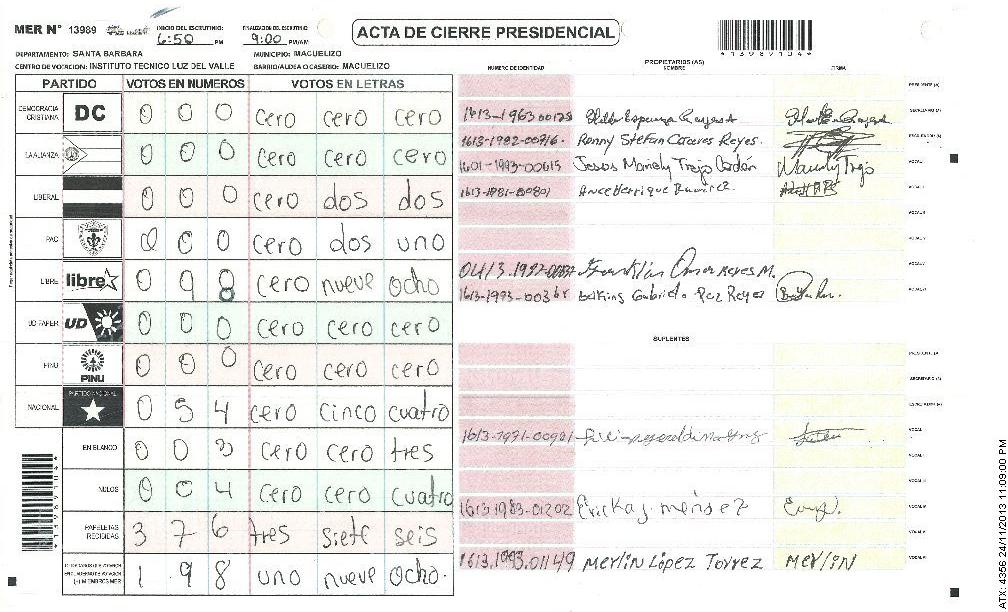 MER N° 13989
INICIO DEL ESCRUTINIO: 6:50 PM
FINALIZACION DEL ESCRUTINIO: 9:00 PM/AM
ACTA DE CIERRE PRESIDENCIAL
*13989104*
DEPARTAMENTO: SANTA BARBARA
MUNICIPIO: MACUELIZO
CENTRO DE VOTACION: INSTITUTO TECNICO LUZ DEL VALLE
BARRIO/ALDEA O CASERIO: MACUELIZO
PARTIDO VOTOS EN NUMEROS VOTOS EN LETRAS
DEMOCRACIA CRISTIANA DC 0 0 0 cero cero cero
LA ALIANZA 0 0 0 cero cero cero
LIBERAL 0 0 0 cero dos dos
PAC 0 0 0 cero dos uno
LIBRE libre 0 9 8 cero nueve ocho
UD FAPER UD 0 0 0 cero cero cero
PINU PINU 0 0 0 cero cero cero
NACIONAL PARTIDO NACIONAL 0 5 4 cero cinco cuatro
EN BLANCO 0 0 3 cero cero tres
NULOS 0 0 4 cero cero cuatro
PAPELETAS RECIBIDAS 3 7 6 tres siete seis
(+) MIEMBROS MER 1 9 8 uno nueve ocho.
NUMERO DE IDENTIDAD
PROPIETARIOS (AS)
NOMBRE
FIRMA
PRESIDENTE (A)
SECRETARIO (A)
1613-1982-00716. Ronny Stefan Caceres Reyes.
ESCRUTADOR (A)
1601-1993-00615 Jesus Mariely Trejo Cordón
VOCAL I
1613-1981-00801
VOCAL II
VOCAL III
VOCAL IV
VOCAL V
Franklin Omar Reyes M.
VOCAL VI
Gabriela Paz Reyes
SUPLENTES
PRESIDENTE (A)
SECRETARIO (A)
ESCRUTADOR (A)
VOCAL I
VOCAL II
VOCAL III
1613-1983-01202 Ericka J. mendez
VOCAL IV
VOCAL V
1613.1993.01149 Merlin López Torrez Merlin
VOCAL VI
ATX: 4356 24/11/2013 11:09:00 PM